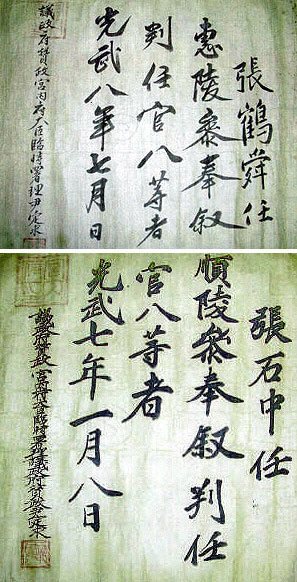 張鶴舜任
惠陵參奉敍
判任官八等者
光武八年七月 日
議政府贊政宮內府大臣臨時署理尹定求
張石中任
順陵參奉敍判任
官八等者
光武七年一月八日